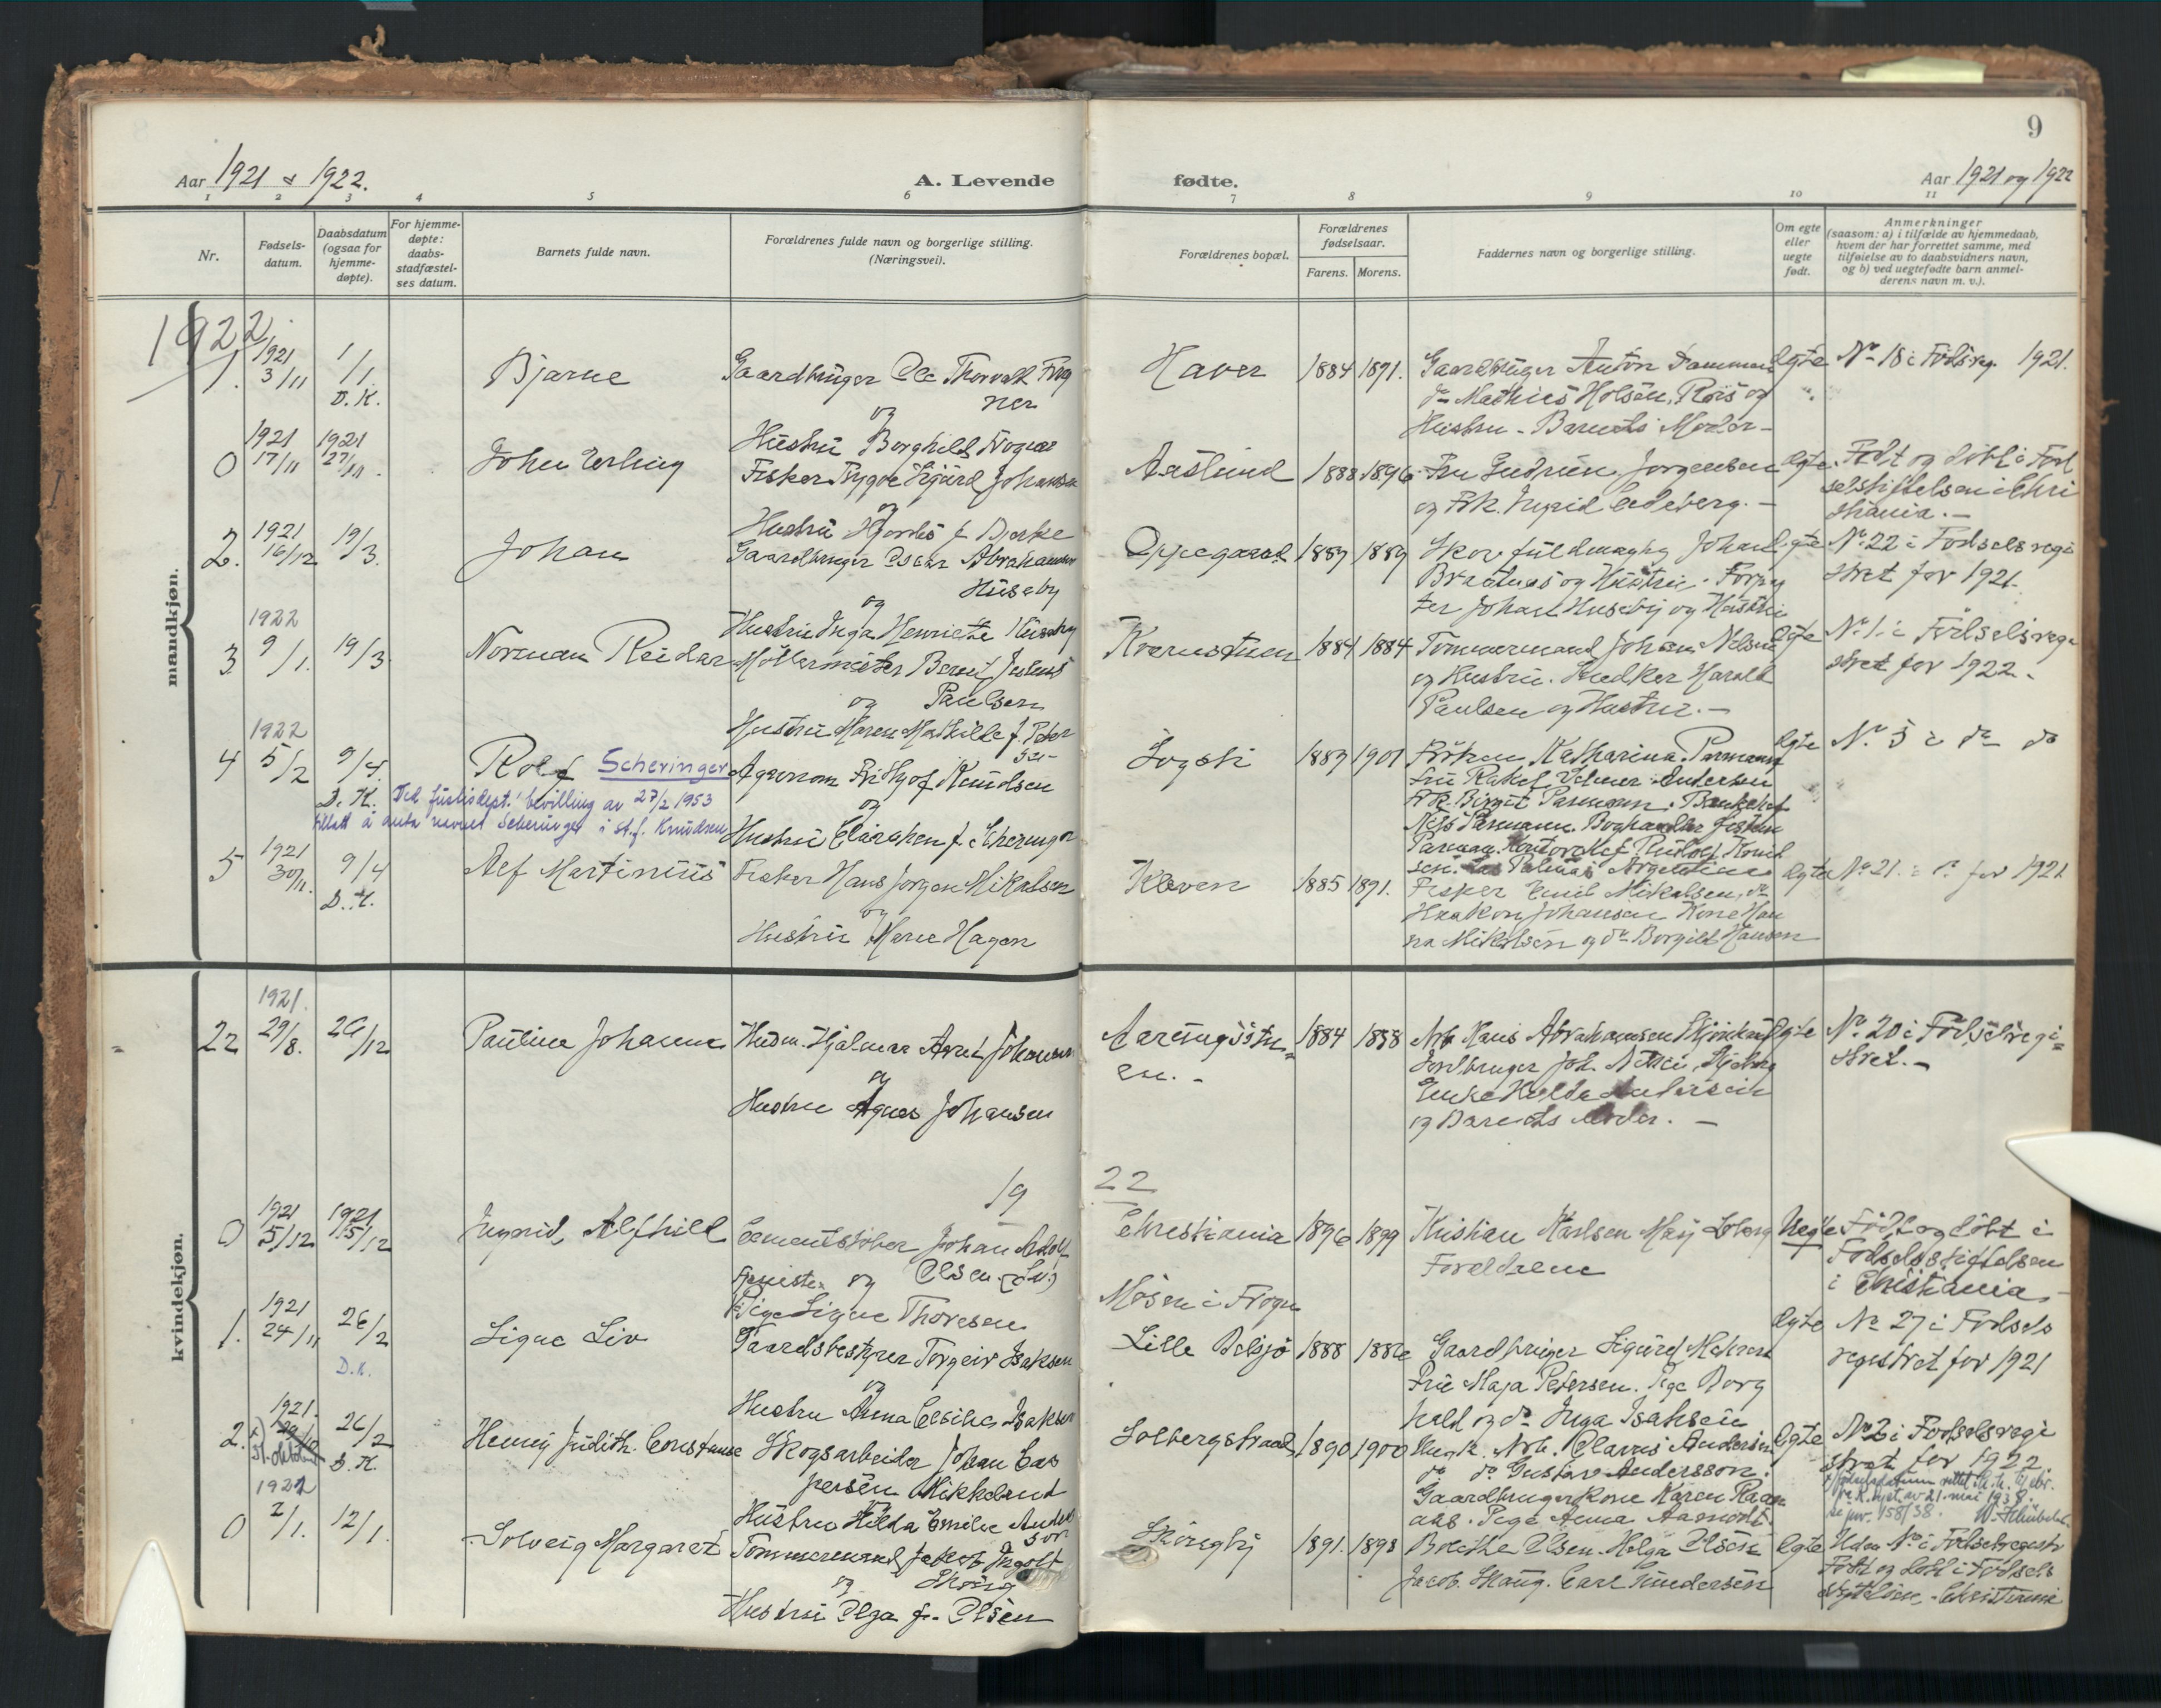 Aar 1921 & 1922.
A. Levende
1 2 3 4 5 6
Nr.
Fødsels-
datum.
Daabsdatum
(ogsaa for
hjemme-
døpte).
For hjemme-
døpte:
daabs-
stadfæstel-
ses datum.
Barnets fulde navn.
Forældrenes fulde navn og borgerlige stilling.
(Næringsvei).
9
fødte.
Aar 1921 og 1922
7 8 9 10 11
Forældrenes bopæl.
Forældrenes
fødselsaar.
Farens. Morens.
Faddernes navn og borgerlige stilling.
Om egte
eller
uegte
født.
Anmerkninger
(saasom: a) i tilfælde av hjemmedaab,
hvem der har forrettet samme, med
tilføielse av to daabsvidners navn,
og b) ved uegtefødte barn anmel-
derens navn m. v.).
mandkjøn.
1922
1. 1921 3/11 1/1 D. K. Bjarne
Gaardbruger Ole Thorvald Frog
ner
og
Hustru Borghild Frogner
Haver 1884 1891.
Gaardbruger Anton Dammen
do Mathies Holsen, Røis og
Hustru - Barnets Moder -
Egte No 18 i Fødsreg. 1921.
0 1921 17/11 1921 27/11. John Erling
Fisker Trygve Sigurd Johansen
og
Hustru Hjørdis f. Bjerke
Aaslund 1888 1896
Fru Gudrun Jørgensen
og Frk. Ingrid Cedeberg. -
Egte. Født og døbt i Fød
selsstiftelsen i Chri
stiania. -
2. 1921 16/12 19/3. Johan
Gaardbruger Oscar Abrahamsen
Huseby
og
Hustru Inga Henriette Huseby
Oppegaard 1889 1889
Skovfuldmægtig Johan
Braatnes og Hustru. Forpag
ter Johan Huseby og Hustru
Egte No 22 i Fødselsregi
stret for 1921.
3 1922 9/1. 19/3 Norman Reidar
Møllermester Bernt Julius
Paulsen
og
Hustru Maren Mathilde f. Peter
sen
Kvernstuen 1884 1884
Tømmermand Johan Nilsen
og Hustru. Snedker Harald
Paulsen og Hustru. -
Egte No 1. i Fødselsregi
stret for 1922.
4 1922 5/2 9/4. D. K. Rolf Scheringer
Ved Justisdept.'s bevilling av 27/2 1953
tillatt å anta navnet Scheringer i st. f. Knudsen
Agronom Fridtjof Knudsen
og
Hustru Clara f. Scheringer
Sogsti 1889 1901
Frøken Katharina Parmann
Fru Rakel Andersen
Frk. Birgit Parmann. Bankchef
Nils Parmann. Boghandler
Parman. Kontorchef Rudolf Knud
sen. Las Palmas Argentina
Egte No 3 i do do
5 1921 30/11. 9/4 D. K. Alf Martinius
Fisker Hans Jørgen Mikalsen
og
Hustru Marie Hagen
Kleven 1885 1891.
Fisker Emil Mikalsen, do
Haakon Johansen Kone Han
na Mikalsen og do Borgild Hansen
Egte No 21. i do for 1921
kvindekjøn.
22 1921. 29/8. 26/12 Pauline Johanne
Husm. Hjalmar Arnt Johansen
og
Hustru Agnes Johansen
Aarungsstu-
en. - 1884 1888
Arb. Hans Abrahamsen
Jordbruger Joh.
Enke Hulda Andersen
og Barnets Moder. -
Egte No 20 i Fødselsregi-
stret. -
19 22
0 1921 5/12 1921 15/12 Ingrid, Alfhild
Cementstøber Johan Adolf
Olsen. (Sv.)
Tjeneste og
Pige Signe Thoresen
Christiania
Mosen i Frogn
1896 1899
Kristian Karlsen Mary Loberg
Foreldrene
Uegte Født og døbt i
Fødselsstiftelsen
i Christiania.
1. 1921 24/11 26/2 D. K. Signe Liv
Gaardsbestyrer Torgeir Isaksen
og
Hustru Anna Cecilie Isaksen
Lille Belsjø 1888 1886
Gaardbruger Sigurd
Fru Maja Petersen. Pige Borg
hild og do Inga Isaksen
Egte No 27 i Fødsels
registret for 1921
2. 1921. 29/10 31. oktober 26/2 D. K. Henny Judith. Constance
Skogsarbeider Johan Cas
persen Mikkelrud
Hustru Hilda Emilie Anders
son
Solbergstrand 1890 1900
Ungk. Arb. Olavus Andersen
do do Gustav Andersson.
Gaardbrugerkone Karen
aas. Pige Anna Aamodt
Egte No 2 i Fødselsregi
stret for 1922.
x) Fødselsdatum rettet
av 21. mai 1938.
se jnr. 158/38.
0 1922 2/1. 12/1. Solveig Margaret
Tømmermand Jakob Ingolf
Skaug
og
Hustru Olga f. Olsen
Skorogby 1891. 1898
Bolette Olsen. Helga Olsen
Jacob. Skaug. Carl Gundersen
Egte Uden No i Fødselsregistr
Født og døbt i Fødsels
stiftelsen. Christiania